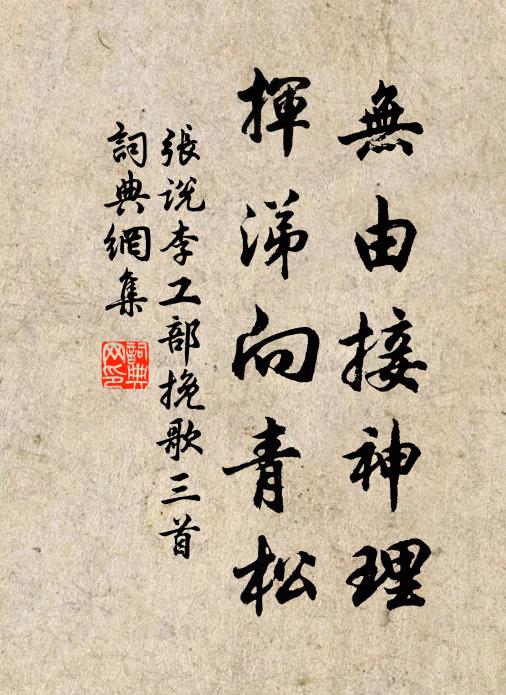 無由接神理
揮涕向青松
張说李工部挽歌三首
詞典網集
詞典
网印